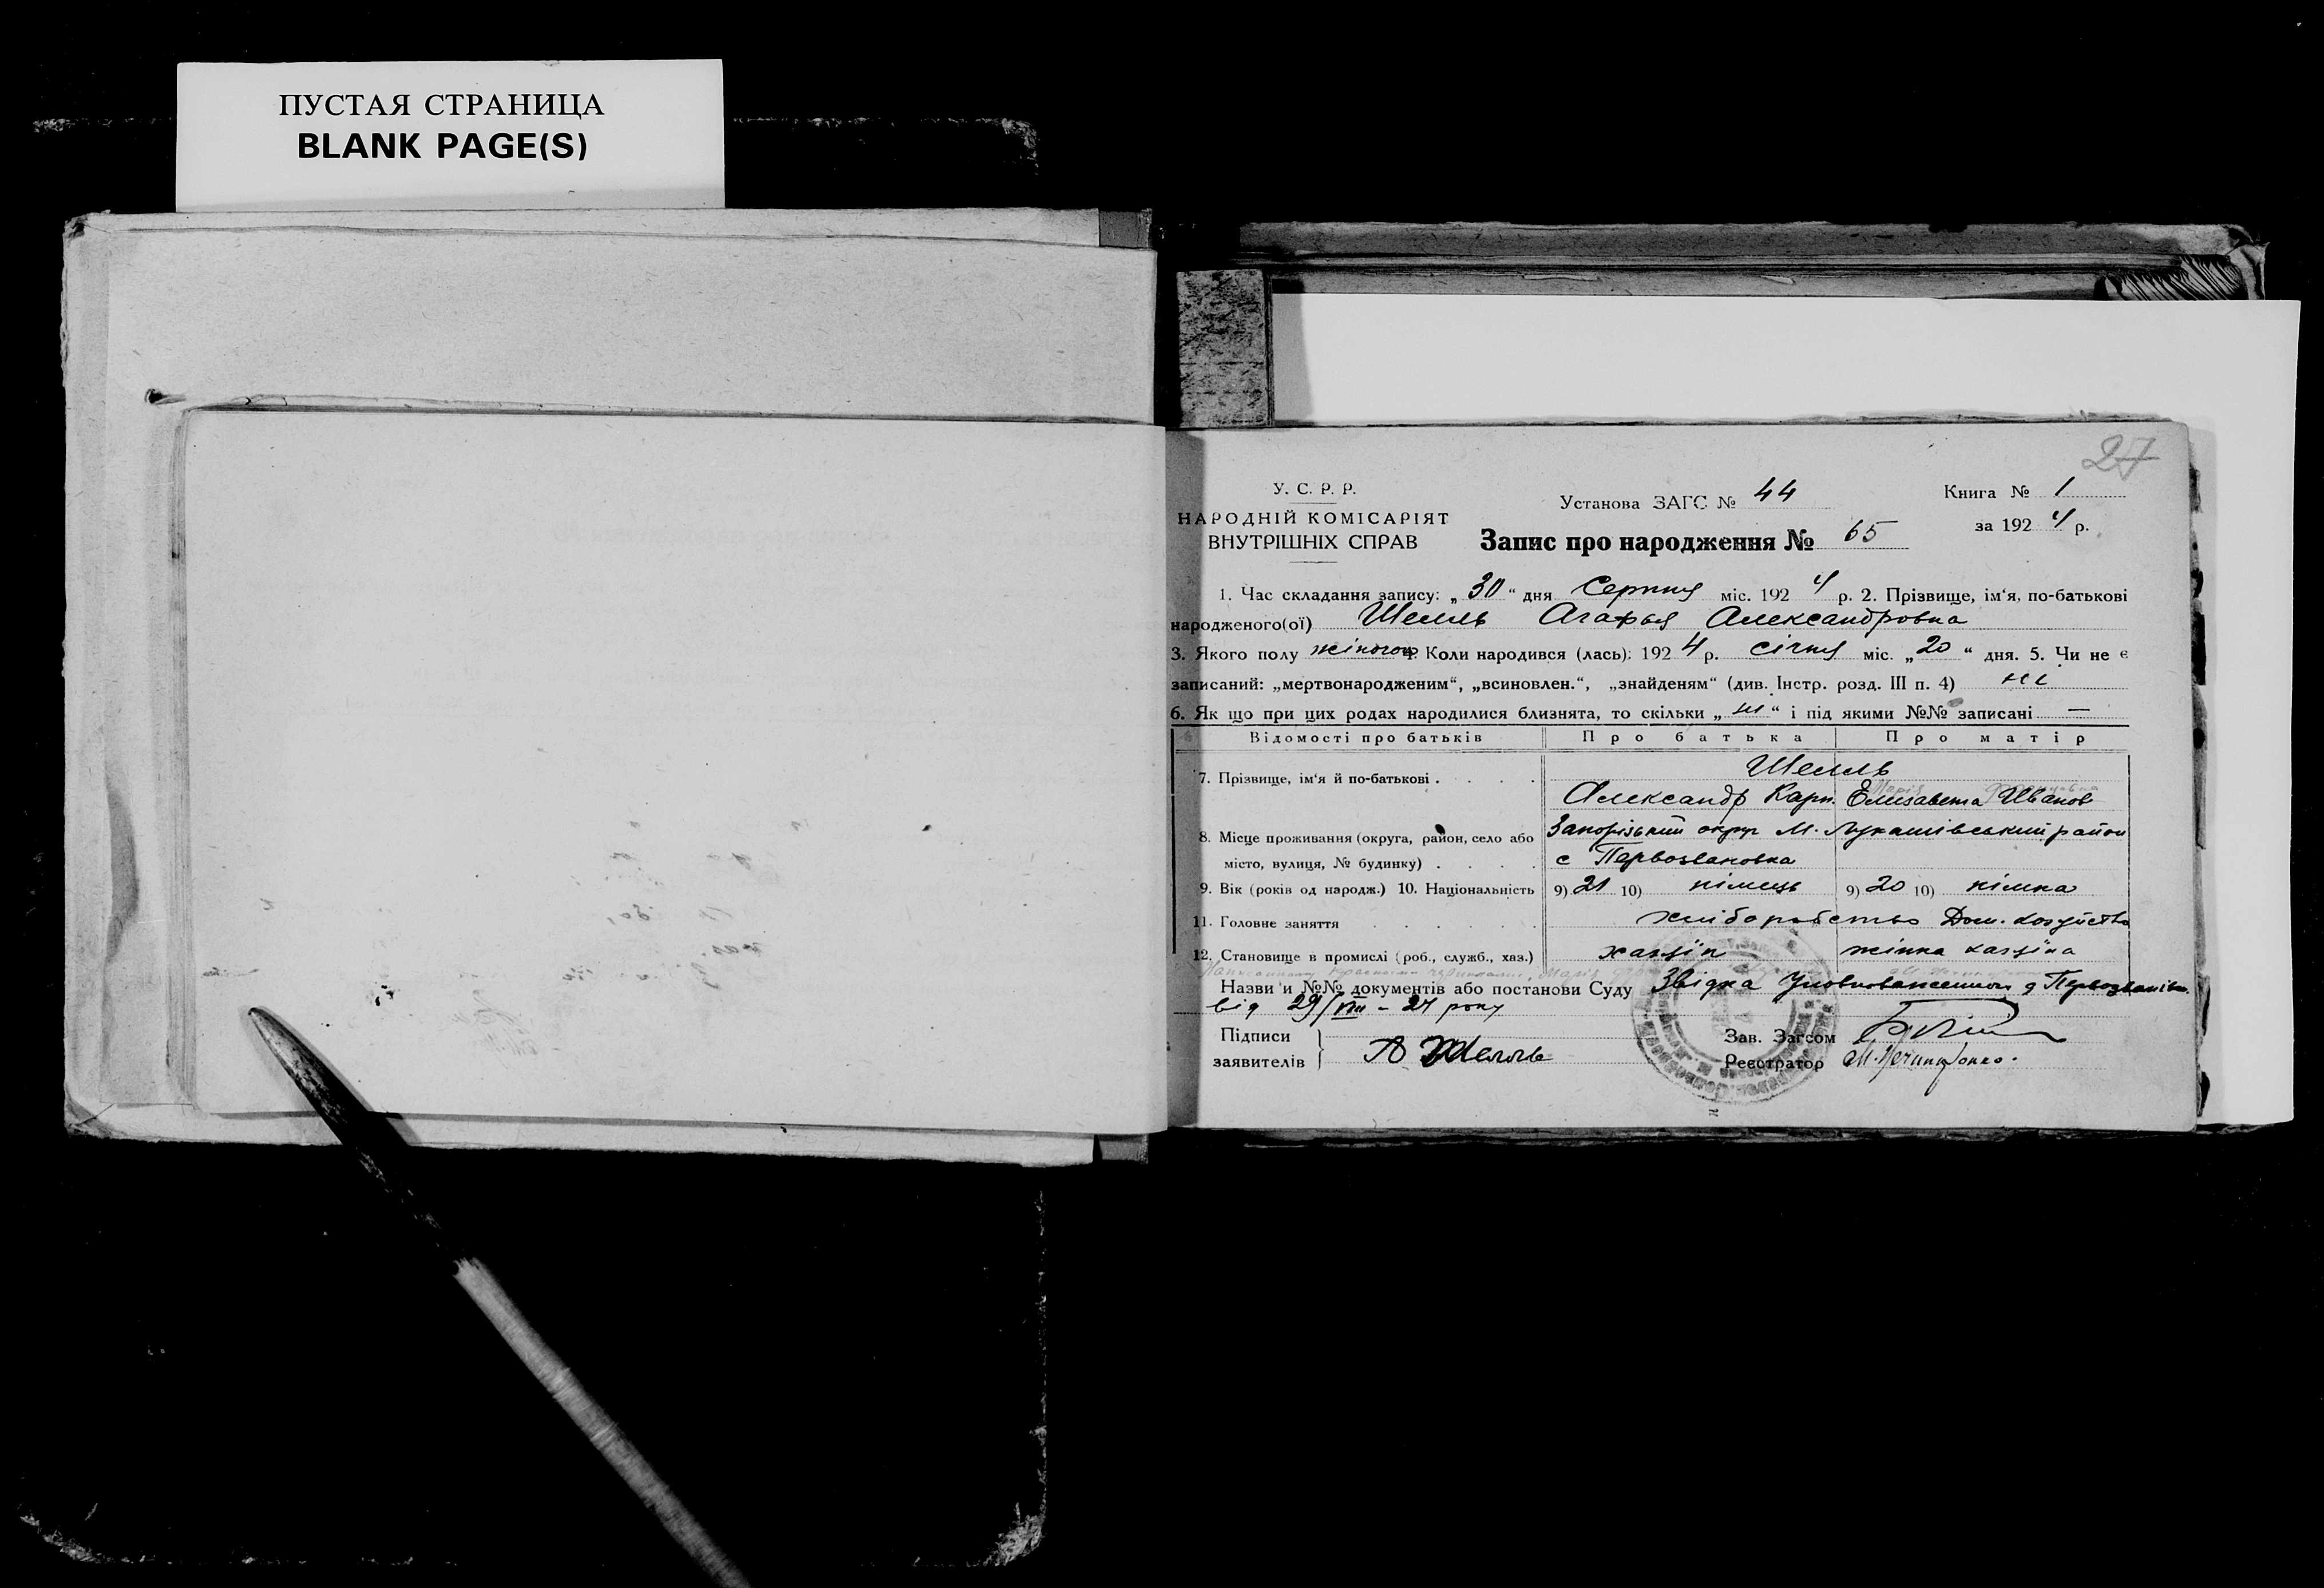 ПУСТАЯ СТРАНИЦА
BLANK PAGE(S)
27
У. С. Р. Р.
НАРОДНІЙ КОМІСАРІЯТ
ВНУТРІШНІХ СПРАВ
Установа ЗАГС № 44
Запис про народження № 65
Книга № 1
за 1924 р.
1. Час складання запису: „30“ дня Серпня міс. 1924 р. 2. Прізвище, ім‘я, по-батькові
народженого(ої) Шелль Агафья Александровна
3. Якого полу жіночого 4. Коли народився (лась): 1924 р. січня міс. „20“ дня. 5. Чи не є
записаний: „мертвонародженим“, „всиновлен.“, „знайденям“ (див. Інстр. розд. III п. 4) ні
6. Як що при цих родах народилися близнята, то скільки „ні“ і під якими №№ записані —
Відомості про батьків Про батька Про матір
7. Прізвище, ім‘я й по-батькові . . . . Шелль
Александр Карл. Елизавета Иванов
8. Місце проживання (округа, район, село або Запорізький округ М. Лукашівський район
місто, вулиця, № будинку) . . . . с Первозвановка
9. Вік (років од народж.) 10. Національність 9) 21 10) німець 9) 20 10) німка
11. Головне заняття . . . . . хліборобство Дом. хозяйство
12. Становище в промислі (роб., служб., хаз.) хазяїн жінка хазяїна
Назви и №№ документів або постанови Суду Звідка Уповноваженного
від 29/VIII – 24 року
Підписи
заявителів А Шелль
Зав. Загсом
Реєстратор